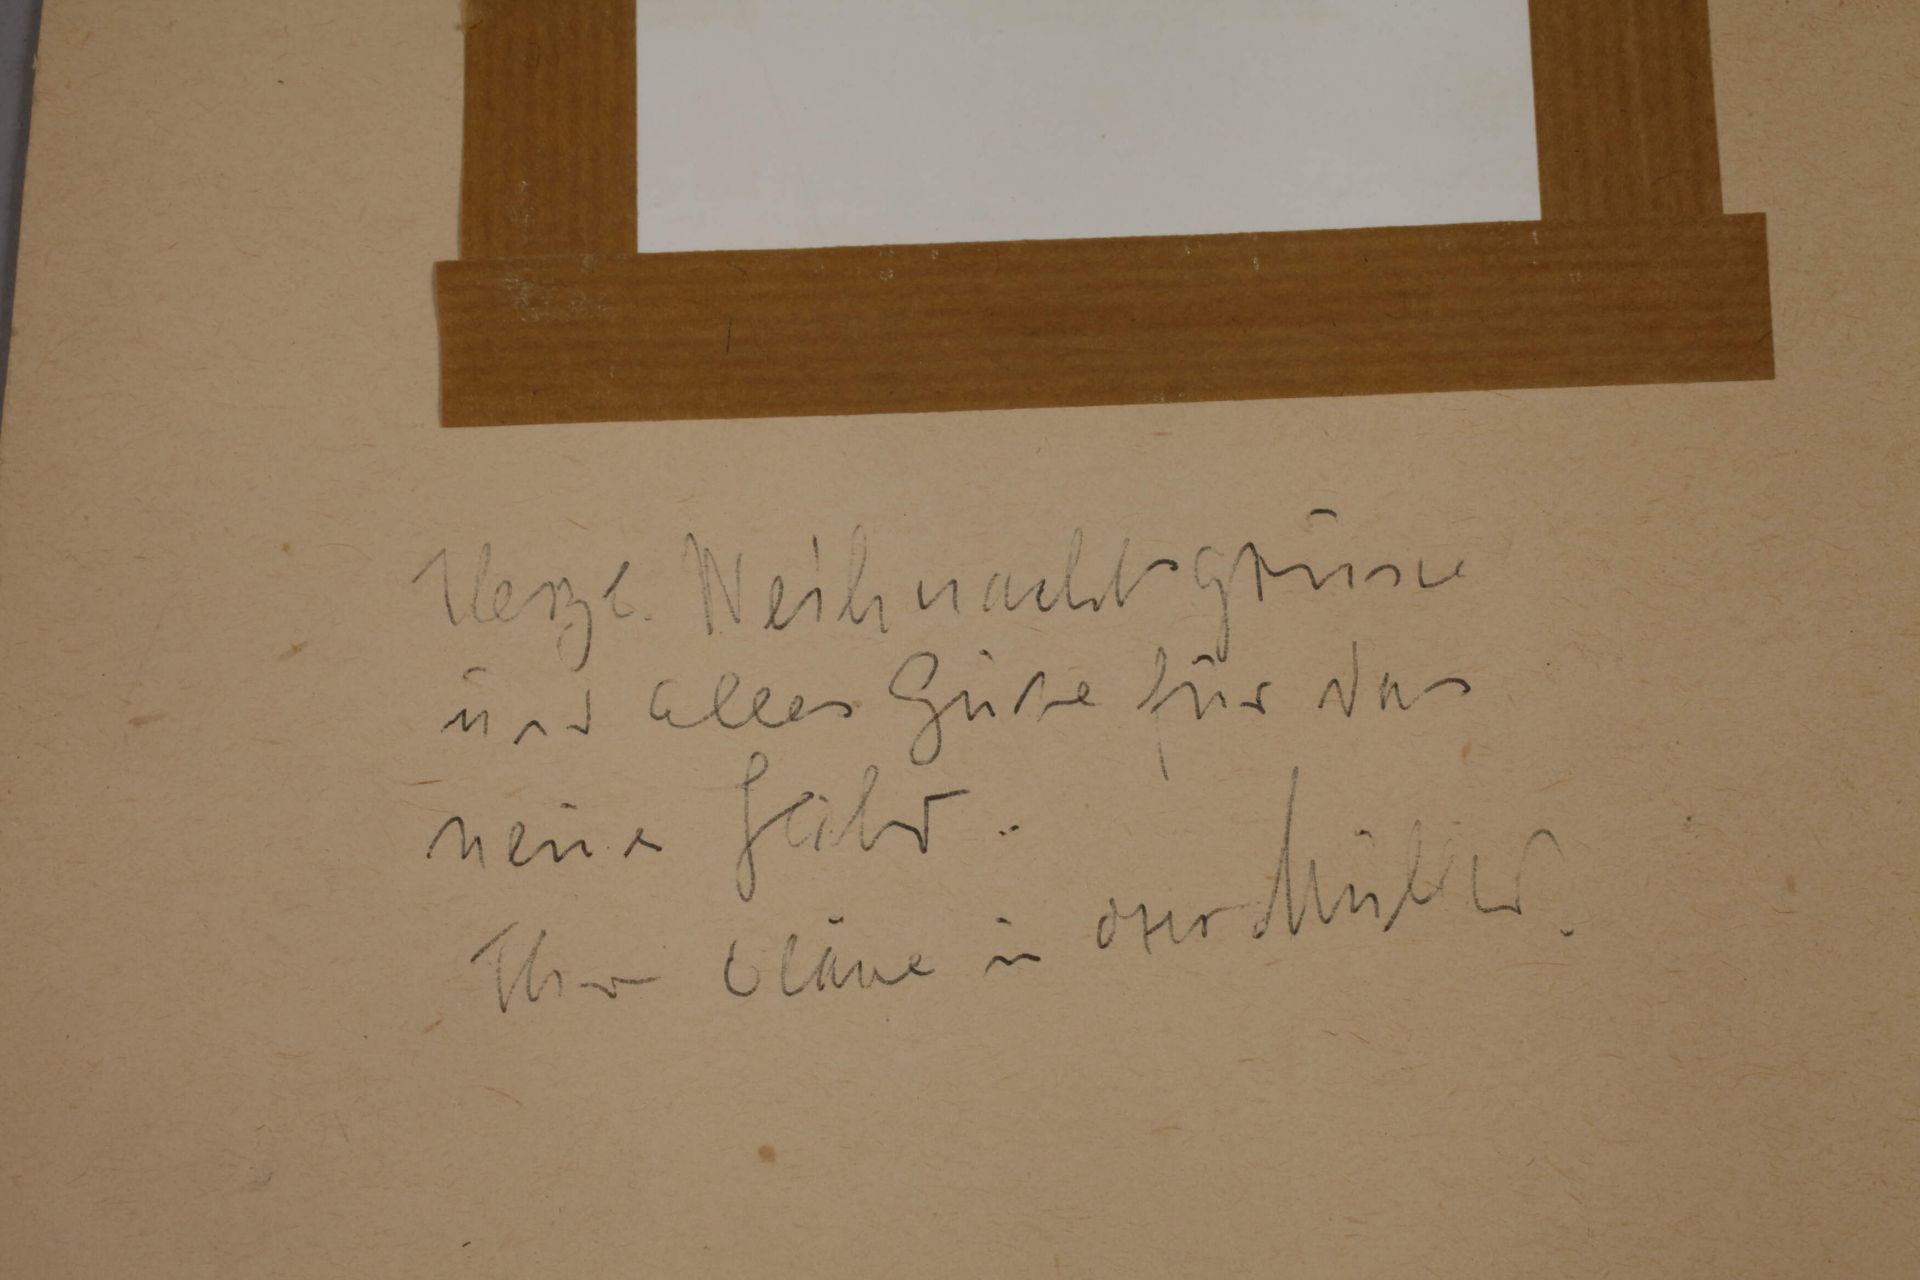 Herzl. Weihnachtsgrüsse
und alles Gute für das
neue Jahr.
Ihre Cläre u. Otto Müller.